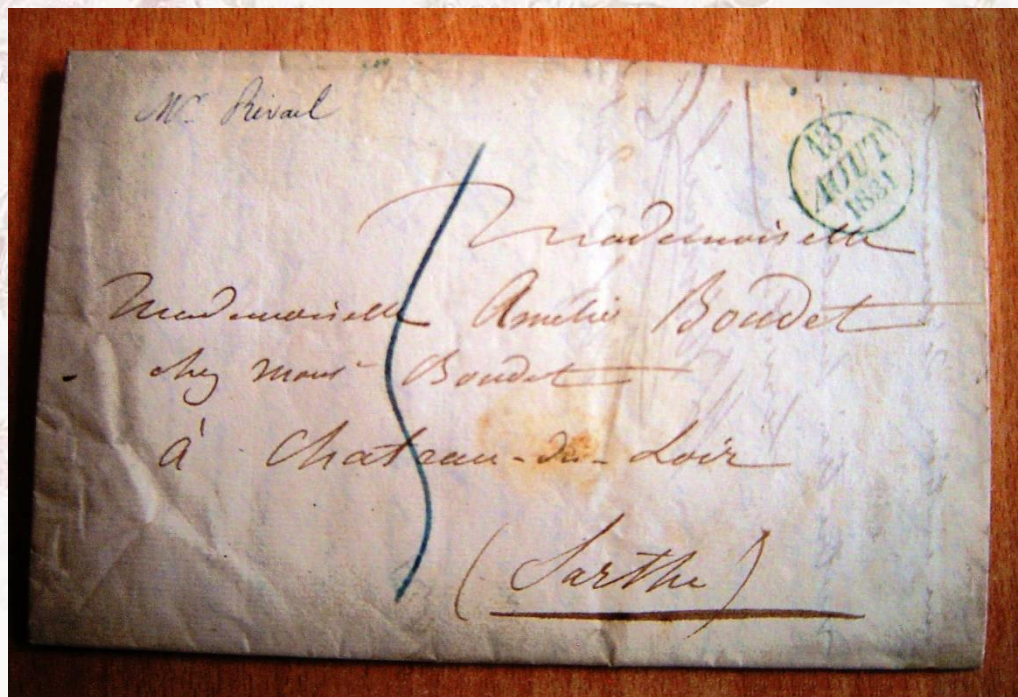 Mr Rivail
13
AOUT
1831
Mademoiselle
Mademoiselle Amélie Boudet
chez Monsr Boudet
à Chateau-du-Loir
(Sarthe)